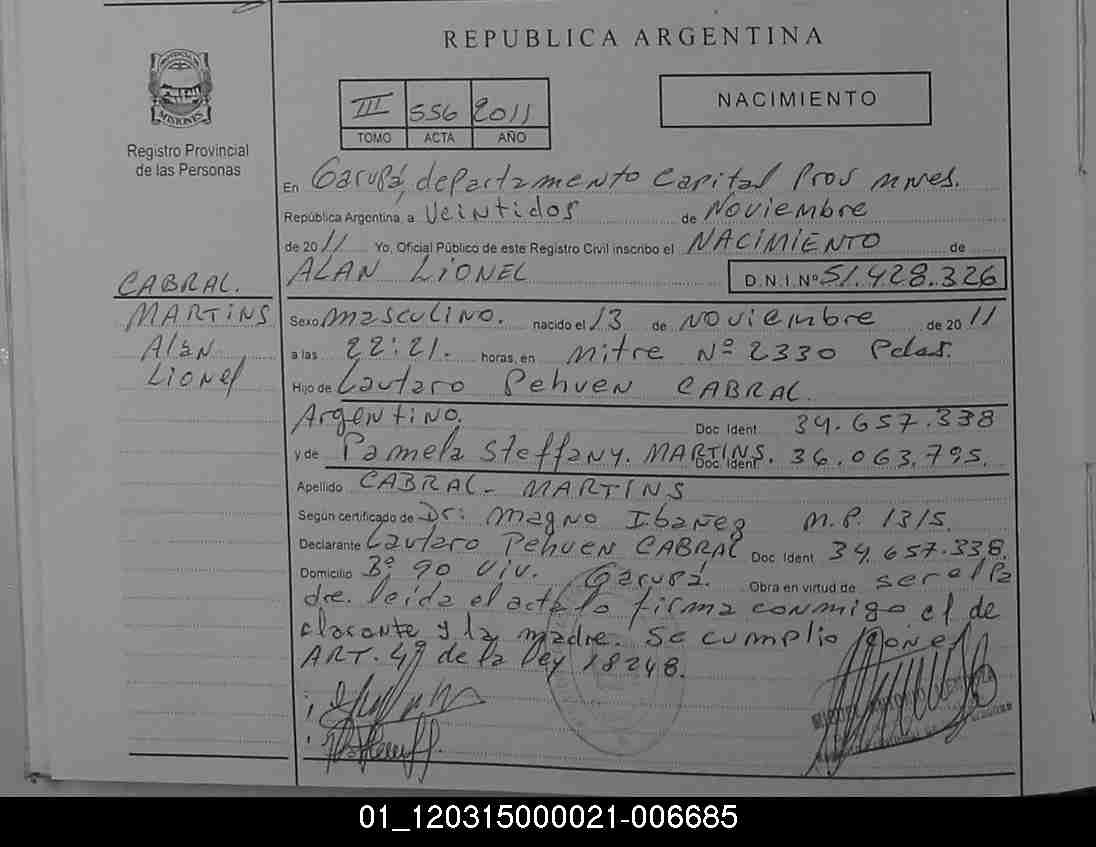 REPUBLICA ARGENTINA
PROVINCIA DE
MISIONES
Registro Provincial
de las Personas
III 556 2011
TOMO ACTA AÑO
NACIMIENTO
En Garupá, departamento Capital Prov mnes.
República Argentina, a Veintidos de Noviembre
de 2011 Yo, Oficial Público de este Registro Civil inscribo el NACIMIENTO de
ALAN LIONEL D.N.I.Nº 51.428.326
CABRAL.
MARTINS
Alan
Lionel
Sexo masculino. nacido el 13 de Noviembre de 2011
a las 22:21. horas, en mitre Nº 2330 Pdas.
Hijo de Lautaro Pehuen CABRAL.
Argentino. Doc Ident 34.657.338
y de Pamela Steffany. MARTINS. Doc. Ident. 36.063.795.
Apellido CABRAL - MARTINS
Según certificado de Dr: Magno Ibañez M.P. 1315.
Declarante Lautaro Pehuen CABRAL Doc Ident 34.657.338.
Domicilio Bº 90 Viv. Garupá. Obra en virtud de ser el Pa
dre. leida el acta lo firma conmigo el de
clarante y la madre. Se cumplio
ART. 49 de la ley 18248.
01_120315000021-006685